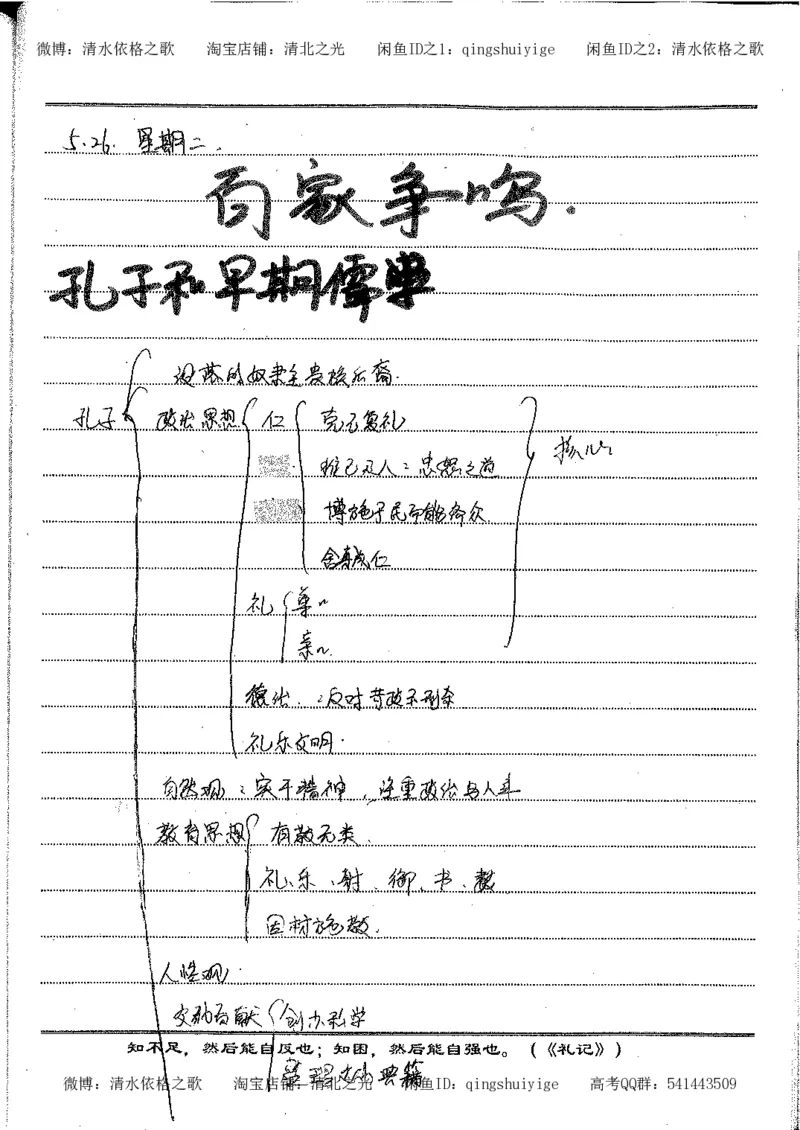 微博：清水依格之歌 淘宝店铺：清北之光 闲鱼ID之1：qingshuiyige 闲鱼ID之2：清水依格之歌
5.26. 星期二.
百家争鸣.
孔子和早期儒学
没落的奴隶主贵族后裔.
孔子 政治思想 仁 克己复礼
核心
推己及人：忠恕之道
博施于民而能济众
舍身成仁
礼 尊〃
亲〃.
德治.：反对苛政不刑杀
礼乐文明.
自然观：实干精神，注重政治与人事
教育思想 有教无类.
礼、乐、射、御、书、数
因材施教.
人性观.
文化贡献 创办私学
知不足，然后能自反也；知困，然后能自强也。（《礼记》）
整理 典籍
微博：清水依格之歌 淘宝店铺：清北之光 闲鱼ID：qingshuiyige 高考QQ群：541443509